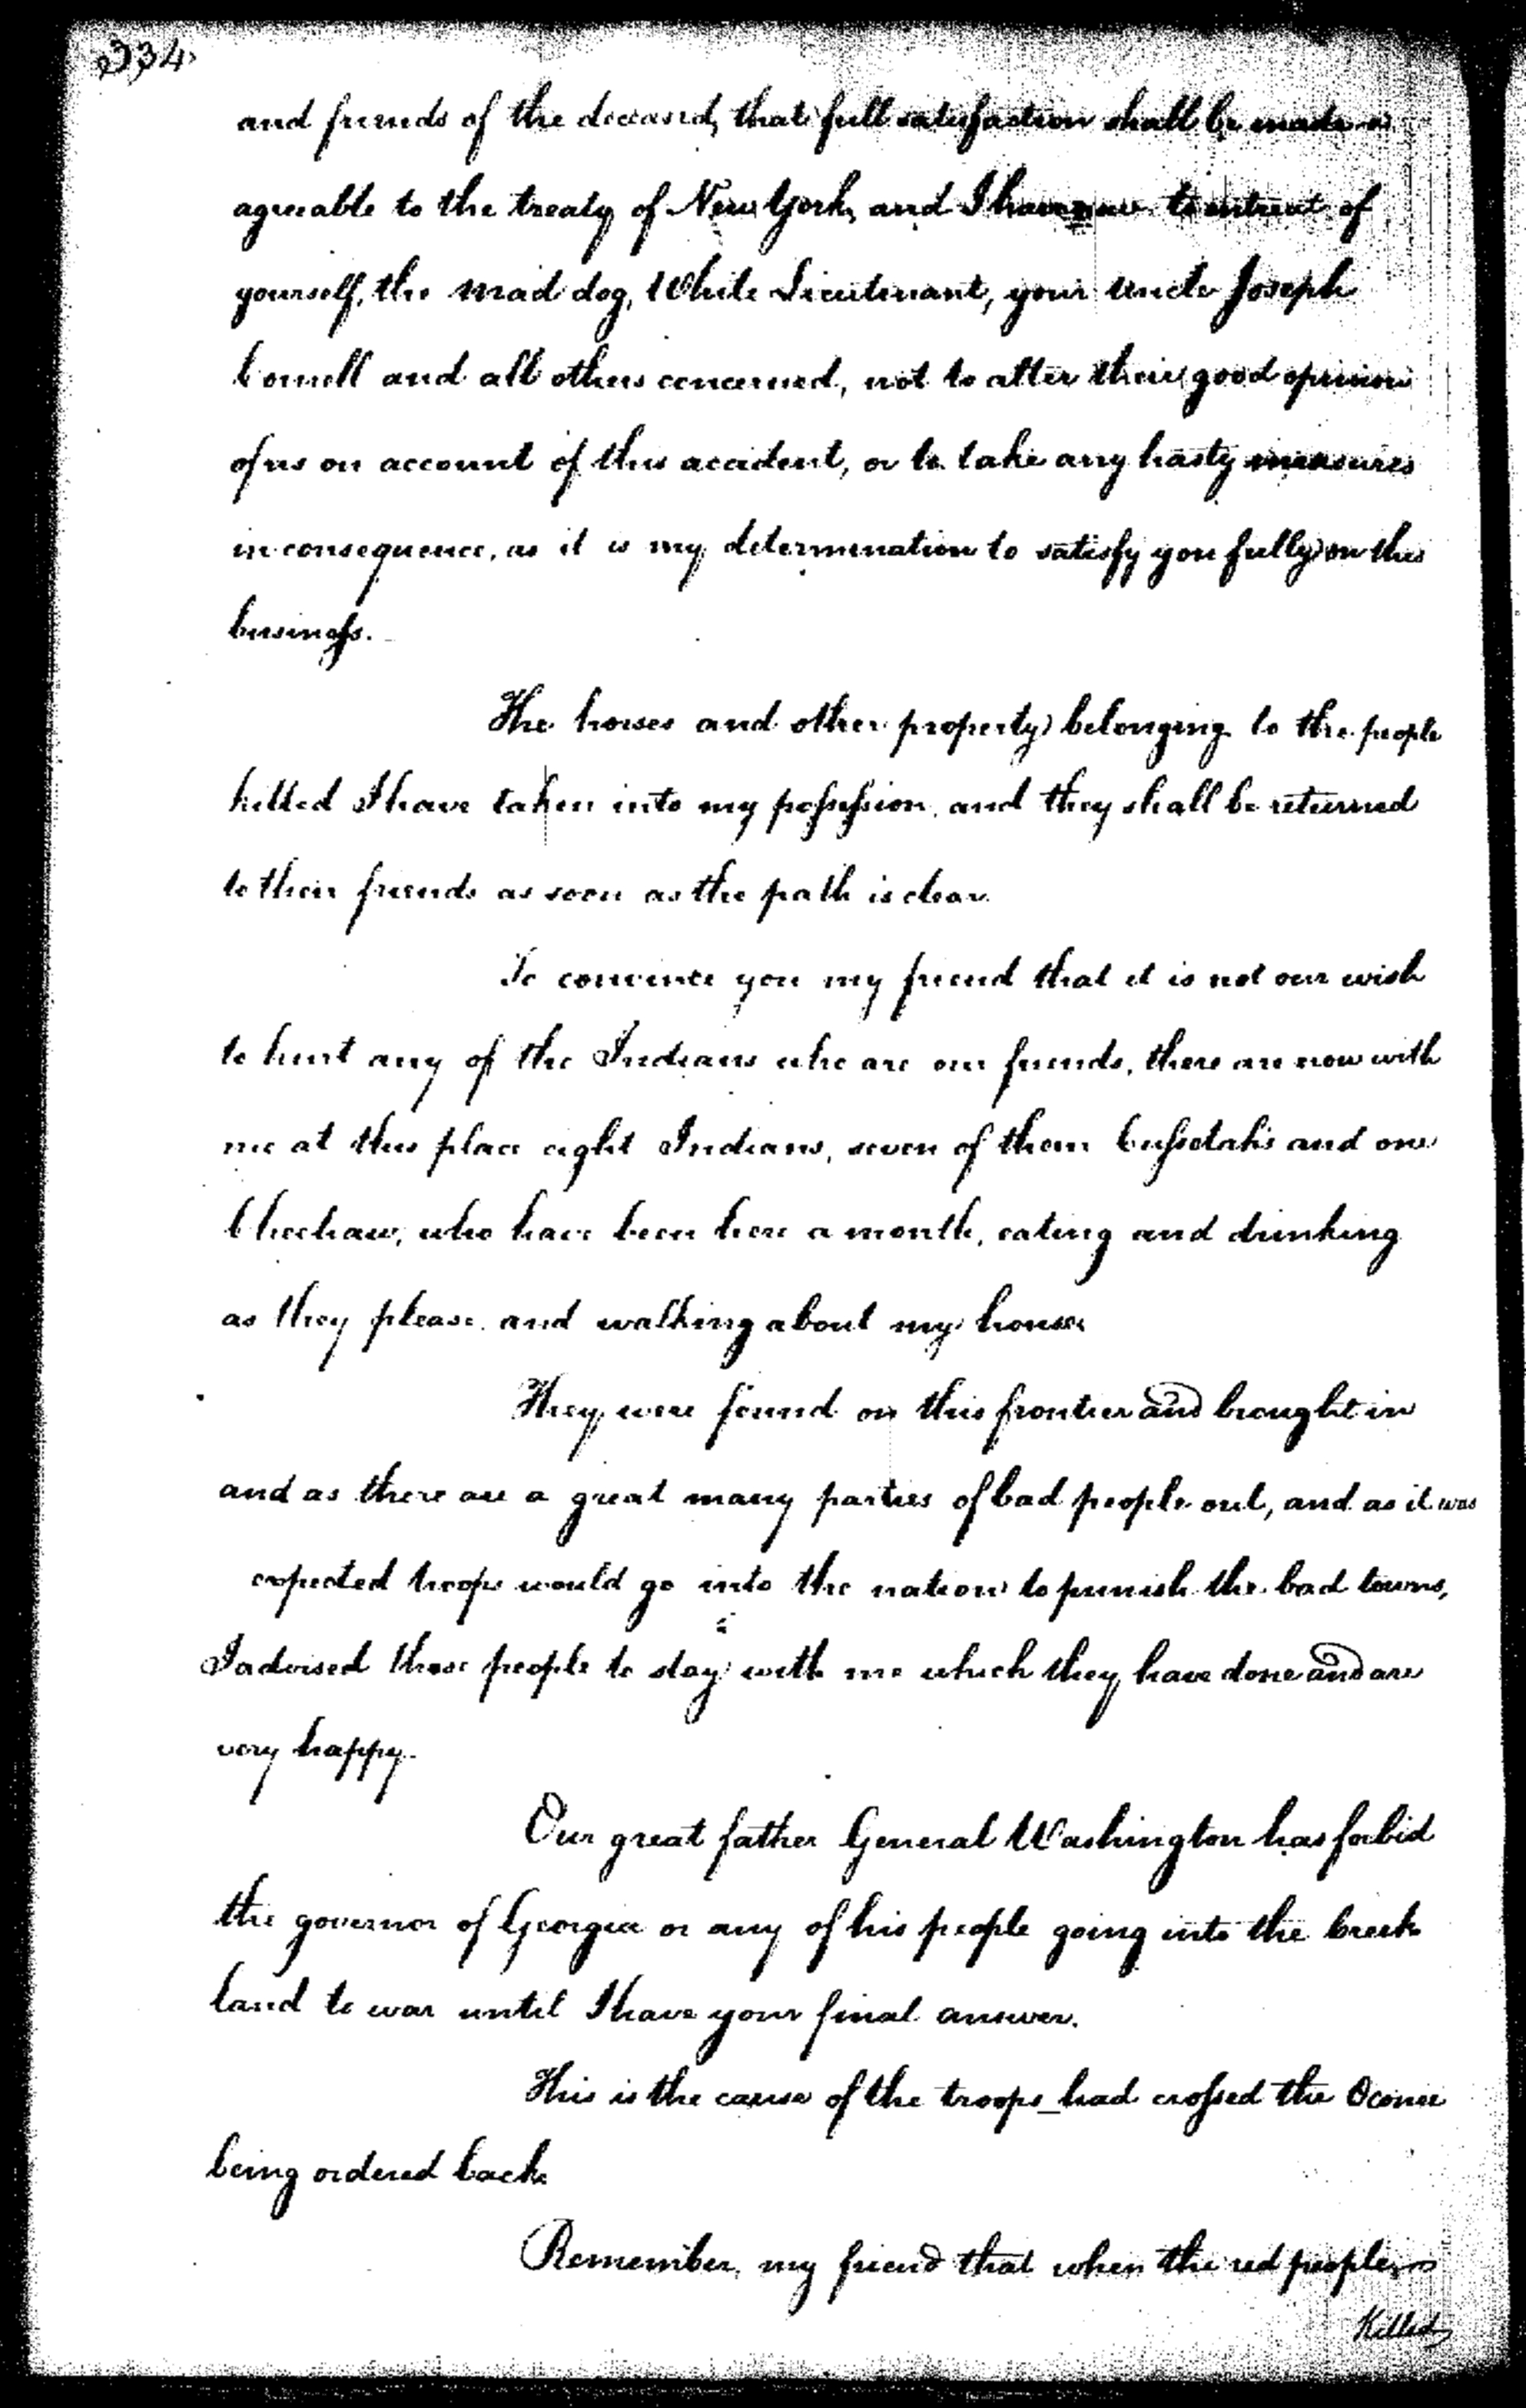 334
and friends of the deceased, that full satisfaction shall be made
agreeable to the treaty of New York, and I have now to intreat of
yourself, the mad dog, White Lieutenant, your uncle Joseph
Cornell and all others concerned, not to alter their good opinion
of us on account of this accident, or to take any hasty measures
in consequence, as it is my determination to satisfy you fully on this
business.
The horses and other property belonging to the people
killed I have taken into my possession, and they shall be returned
to their friends as soon as the path is clear.
To convince you my friend that it is not our wish
to hurt any of the Indians who are our friends, there are now with
me at this place eight Indians, seven of them Cussetahs and one
Cheehaw, who have been here a month, eating and drinking
as they please and walking about my house
They were found on this frontier and brought in
and as there are a great many parties of bad people out, and as it was
expected troops would go into the nation to punish the bad towns,
I advised those people to stay with me which they have done and are
very happy.
Our great father General Washington has forbid
the governor of Georgia or any of his people going into the Creek
land to war until I have your final answer.
This is the cause of the troops_had crossed the Oconee
being ordered back
Remember, my friend that when the red people
Killed